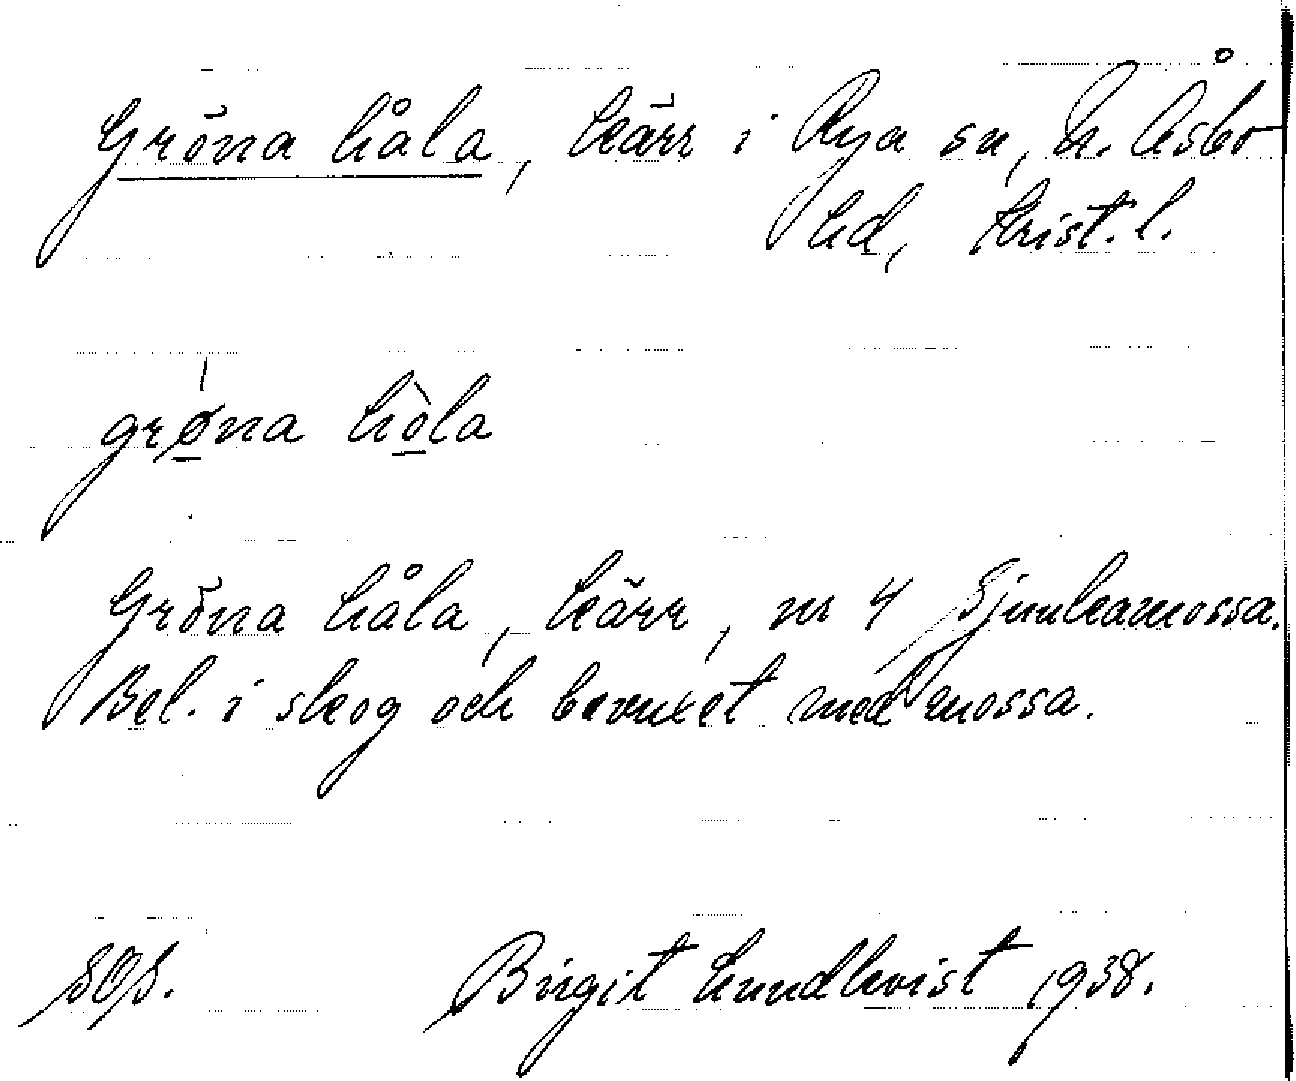 Gröna håla, kärr i Rya sn, N. Åsbo
hd, Krist. l.
grøna hòla
Gröna håla, kärr, nr 4 Sjunkamossa.
Bel. i skog och bevuxet med mossa.
sep. Birgit Lundkvist 1938.